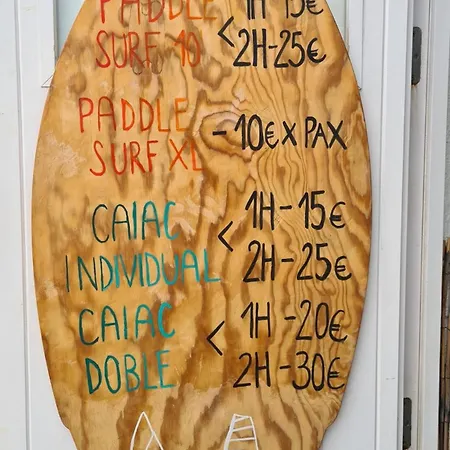 PADDLE 1H-15€
SURF 10 < 2H-25€
PADDLE
SURF XL -10€ X PAX
CAIAC < 1H-15€
INDIVIDUAL 2H-25€
CAIAC < 1H-20€
DOBLE 2H-30€